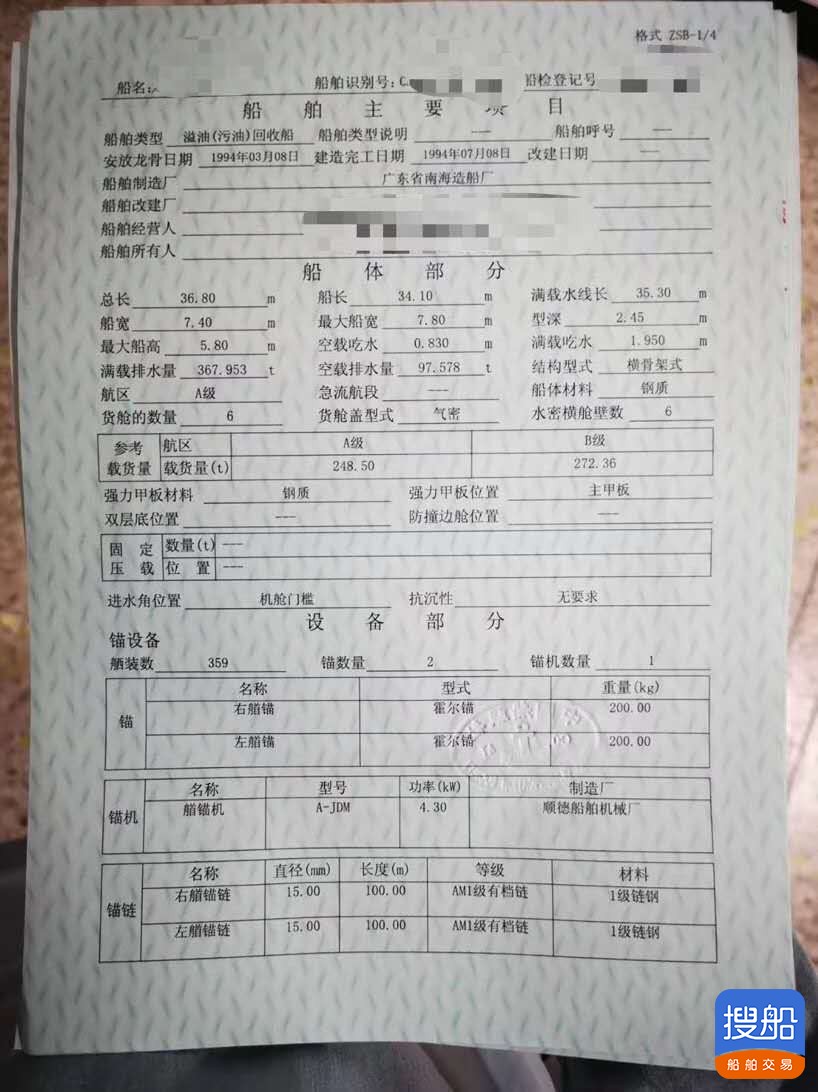 格式 ZSB-1/4
船名:
船舶识别号:C
船检登记号
船舶主要项目
船舶类型 溢油(污油)回收船 船舶类型说明 --- 船舶呼号 ---
安放龙骨日期 1994年03月08日 建造完工日期 1994年07月08日 改建日期 ---
船舶制造厂 广东省南海造船厂
船舶改建厂
船舶经营人
船舶所有人
船体部分
总长 36.80 m 船长 34.10 m 满载水线长 35.30 m
船宽 7.40 m 最大船宽 7.80 m 型深 2.45 m
最大船高 5.80 m 空载吃水 0.830 m 满载吃水 1.950 m
满载排水量 367.953 t 空载排水量 97.578 t 结构型式 横骨架式
航区 A级 急流航段 --- 船体材料 钢质
货舱的数量 6 货舱盖型式 气密 水密横舱壁数 6
参考载货量 航区 A级 B级
载货量(t) 248.50 272.36
强力甲板材料 钢质 强力甲板位置 主甲板
双层底位置 --- 防撞边舱位置 ---
固定压载 数量(t) ---
位置 ---
进水角位置 机舱门槛 抗沉性 无要求
设备部分
锚设备
舾装数 359 锚数量 2 锚机数量 1
锚 名称 型式 重量(kg)
右艏锚 霍尔锚 200.00
左艏锚 霍尔锚 200.00
锚机 名称 型号 功率(kW) 制造厂
艏锚机 A-JDM 4.30 顺德船舶机械厂
锚链 名称 直径(mm) 长度(m) 等级 材料
右艏锚链 15.00 100.00 AM1级有档链 1级链钢
左艏锚链 15.00 100.00 AM1级有档链 1级链钢
搜船
船舶交易